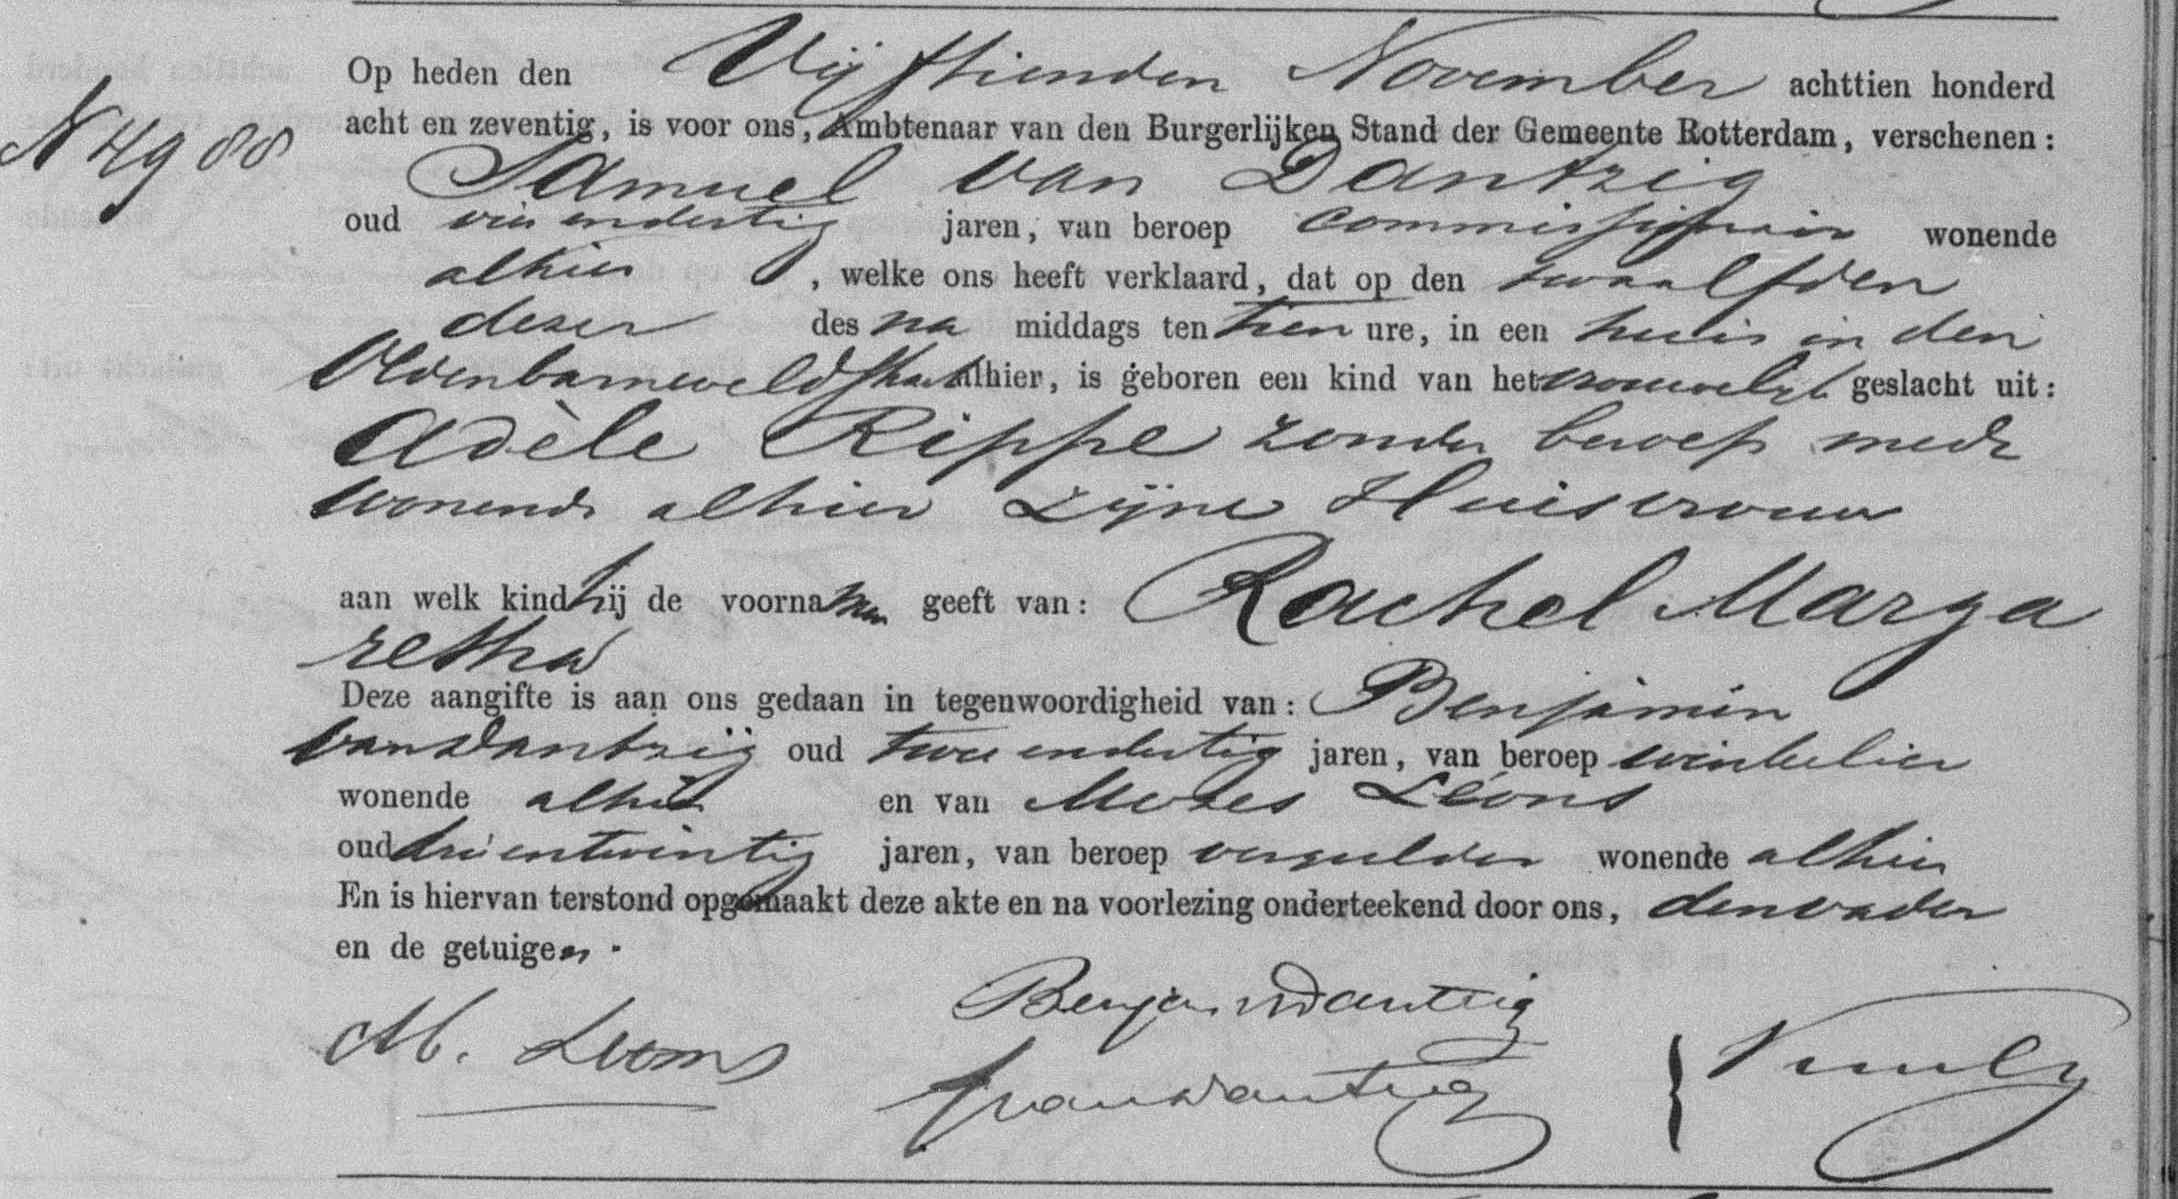 Op heden den Vijftienden November achttien honderd
N 4988
acht en zeventig, is voor ons, Ambtenaar van den Burgerlijken Stand der Gemeente Rotterdam, verschenen:
Samuel van Dantzig
oud vier en dertig jaren, van beroep commissionair wonende
alhier, welke ons heeft verklaard, dat op den twaalfden
dezer des na middags ten tien ure, in een huis in den
Oldenbarneveldstraat alhier, is geboren een kind van het vrouwelijk geslacht uit:
Adèle Rippe zonder beroep mede
wonende alhier zijne Huisvrouw
aan welk kind hij de voornamen geeft van: Rachel Marga
retha
Deze aangifte is aan ons gedaan in tegenwoordigheid van: Benjamin
van Dantzig oud twee en dertig jaren, van beroep winkelier
wonende alhier en van Mozes Léons
oud drie en twintig jaren, van beroep vergulder wonende alhier
En is hiervan terstond opgemaakt deze akte en na voorlezing onderteekend door ons, den vader
en de getuigen.
Benja. v Dantzig
M. Leons
van Dantzig